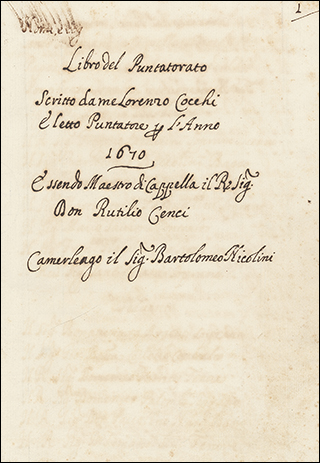 1
Libro del Puntatorato
Scritto da me Lorenzo Cocchi
Eletto Puntatore p L'Anno
1670
Essendo Maestro di Cappella il R Sig.
Don Rutilio Cenci
Camerlengo il Sig. Bartolomeo Nicolini